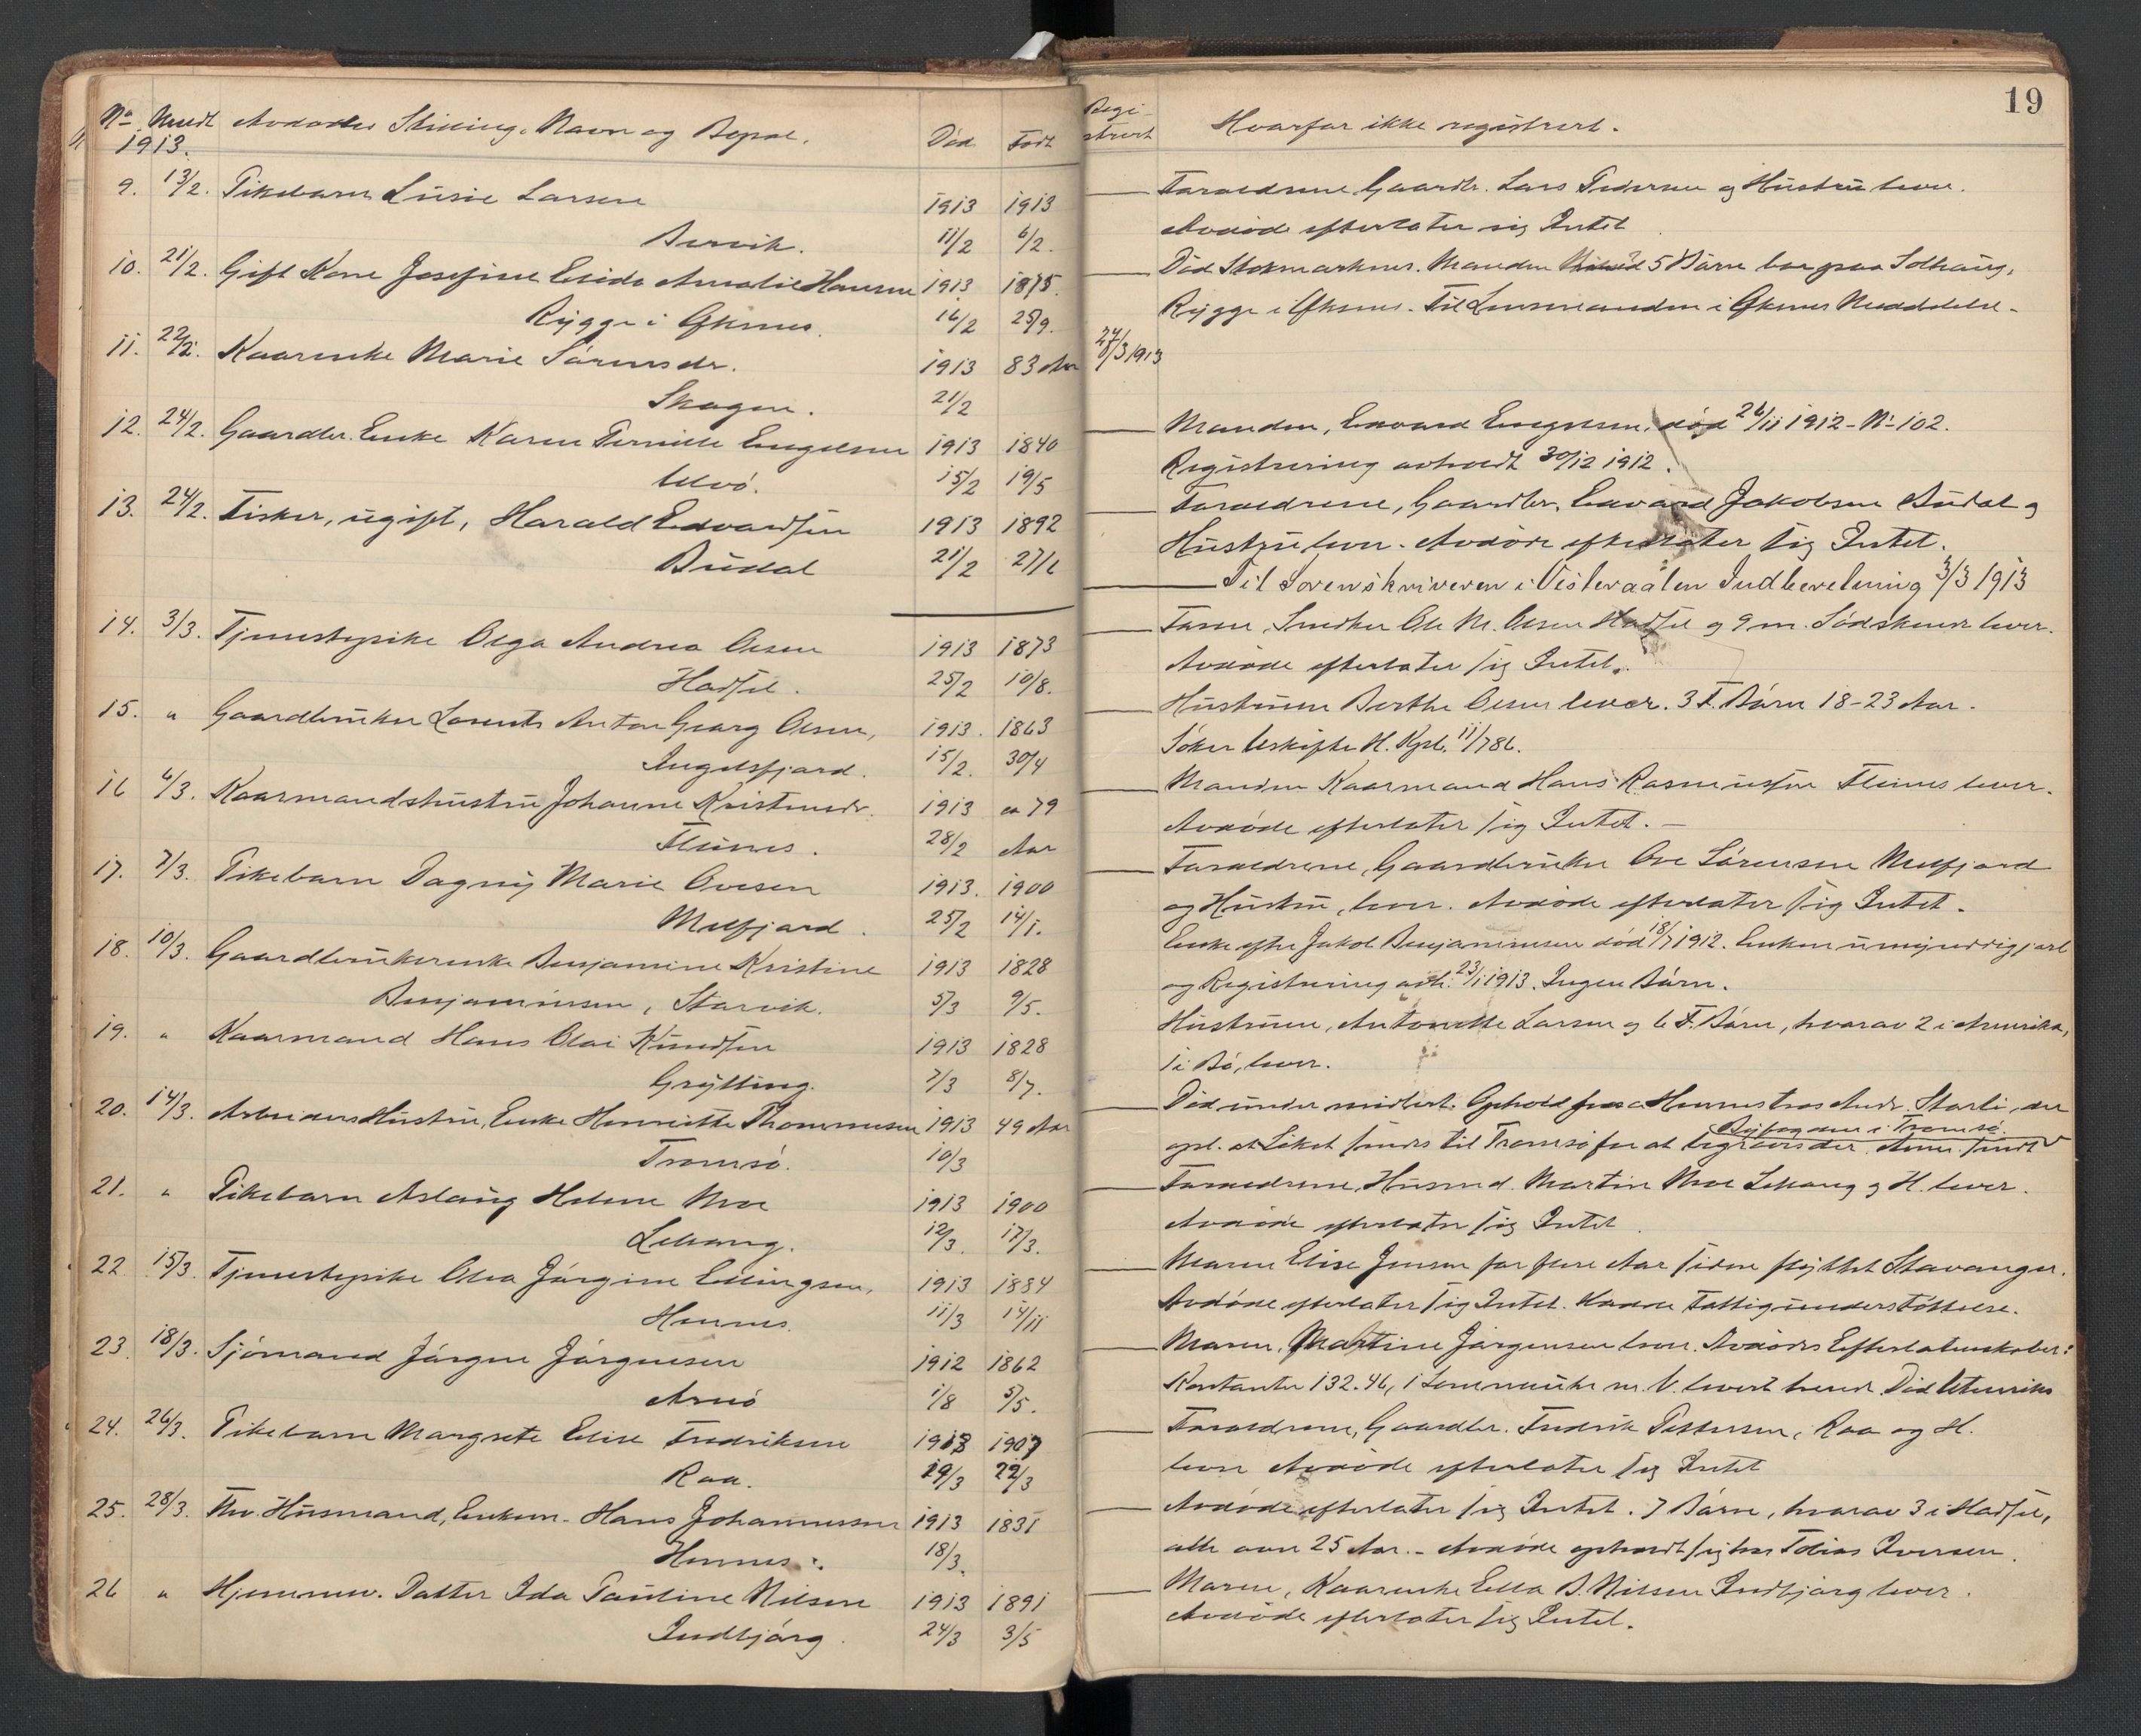 19
No Meldt Avdødes Stilling, Navn og Bopæl. Død Født Regi-
1913. strert Hvorfor ikke registrert.
9. 13/2. Pikebarn Lusie Larsen 1913 1913 — Foreldrene Gaardbr. Lars Pedersen og Hustru lever.
Børvik. 11/2 6/2. Avdøde efterlater sig Intet
10. 21/2. Gift Kone Josefine Elida Amalie Hansen 1913 1875. — Død Stokmarknes. Manden 5 Børn bor paa Solhaug,
Rygge i Øksnes. 16/2 25/9. Rygge i Øksnes. Til Lensmanden i Øksnes Meddelelse.
11. 22/2. Kaarenke Marie Sørensdr. 1913 83 Aar 27/3 1913
Skagen. 21/2
12. 24/2. Gaardbr. Enke Karen Pernille Engelsen 1913 1840 — Manden, Edvard Engelsen, død 26/11 1912 - No 102.
Ulvø. 15/2 19/5 Registrering avholdt 30/12 1912.
13. 24/2. Fisker, ugift, Harald Edvardsen 1913 1892 — Foreldrene, Gaardbr. Edvard Jakobsen Budal og
Budal 21/2 27/6 Hustru lever. Avdøde efterlater sig Intet.
— Til Sorenskriveren i Vesteraalen Indberetning 3/3 1913
14. 3/3. Tjenestepike Olga Andrea Olsen 1913 1873 — Faren, Snedker Ole M. Olsen Hadsel og 9 m. Sødskende lever.
Hadsel. 25/2 10/8. Avdøde efterlater sig Intet.
15. " Gaardbruker Lorents Anton Georg Olsen, 1913. 1863 — Hustruen Berthe Olsen lever. 3 F. Børn 18-23 Aar.
Ingelsfjord. 15/2. 30/4 Søker Uskifte H. Kgb. 11/786.
16 6/3. Kaarmandshustru Johanne Kristensdr. 1913 ca 79 — Manden Kaarmand Hans Rasmussen Flines lever.
Flines. 28/2 Aar Avdøde efterlater sig Intet. —
17. 7/3. Pikebarn Dagny Marie Ovesen 1913. 1900 — Foreldrene, Gaardbruker Ove Sørensen Melfjord
Melfjord. 25/2 14/1. og Hustru, lever. Avdøde efterlater sig Intet.
18. 10/3. Gaardbrukerenke Benjamine Kristine 1913 1828 Enke efter Jakob Benjaminsen død 18/7 1912. Enken umyndiggjort
Benjaminsen, Starvik. 5/3 9/5. og Registrering avh. 23/1 1913. Ingen Børn.
19. " Kaarmand Hans Olai Knudsen 1913 1828 Hustruen, Antonette Larsen og 6 F. Børn, hvorav 2 i Amerika,
Grytting. 7/3 8/7. 1 i Bø, lever.
20. 14/3. Arbeiders Hustru, Enke Henriette Thommesen 1913 49 Aar — Død under midlert. Ophold hos Andr. Storli, der
Tromsø. 10/3 opl. at Liket sendes til Tromsø for at begraves der. Byfogden i Tromsø
21. " Pikebarn Aslaug Helene Moe 1913 1900 — Foreldrene, Husmd. Martin Moe Lekang og H. lever.
Lekang. 12/3. 17/3. Avdøde efterlater sig Intet.
22 15/3. Tjenestepike Olea Jørgine Ellingsen, 1913 1884 — Moren Elise Jensen for flere Aar siden flyttet Stavanger.
Hennes. 11/3 14/11 Avdøde efterlater sig Intet. Hadde Fattigunderstøttelse.
23. 18/3. Sjømand Jørgen Jørgensen 1912 1862 — Moren, Martine Jørgensen lever. Avdødes Efterlatenskaber:
Arnø 1/8 5/5. Kontanter 132.46, 1 Lommeuhr m. V. Død Utenriks
24. 26/3. Pikebarn Margrete Elise Fredriksen 1913 1907 — Foreldrene, Gaardbr. Fredrik Pettersen, Raa og H.
Raa. 19/3 22/3 lever Avdøde efterlater sig Intet
25. 28/3. Fhv. Husmand, Enkem. Hans Johannessen 1913 1831 — Avdøde efterlater sig Intet. 7 Børn, hvorav 3 i Hadsel,
Hennes. 18/3. alle over 25 Aar. - Avdøde opholdt sig hos Tobias Iversen.
26 " Hjemmev. Datter Ida Pauline Nilsen 1913 1891 — Moren, Kaarenke Ella B. Nilsen Indbjørg lever.
Indbjørg. 24/3 3/5 Avdøde efterlater sig Intet.